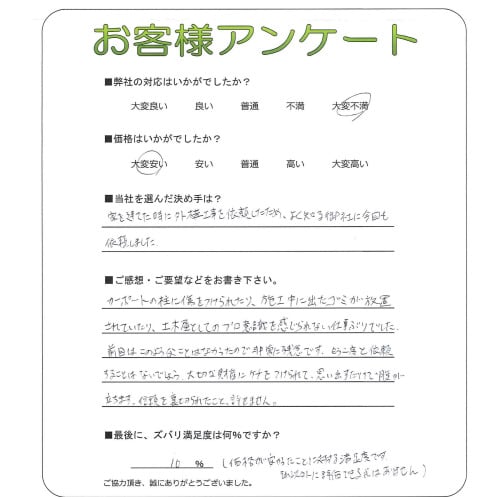 お客様アンケート
■弊社の対応はいかがでしたか？
大変良い 良い 普通 不満 大変不満
■価格はいかがでしたか？
大変安い 安い 普通 高い 大変高い
■当社を選んだ決め手は？
家を建てた時に外構工事を依頼したため、よく知る御社に今回も
依頼しました
■ご感想・ご要望などをお書き下さい。
カーポートの柱に傷をつけられたり、施工中に出たゴミが放置
されていたり、土木屋としてのプロ意識を感じられない仕事ぶりでした。
前回はこのようなことはなかったので非常に残念です。もう二度と依頼
することはないでしょう。大切な財産にケチをつけられて、思い出すだけで腹が
立ちます。信頼を裏切られたこと、許せません。
■最後に、ズバリ満足度は何％ですか？
10 % (価格が安かったことに対する満足度です
それ以外に評価できる点はありません)
ご協力頂き、誠にありがとうございました。